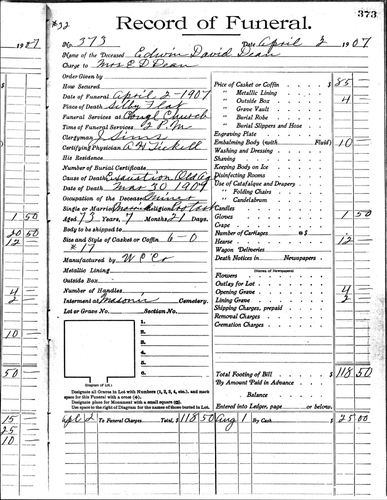 #32
Record of Funeral.
373
1907
No. 373
Date April 2 1907
Name of the Deceased Edwin David Dean
Charge to Mrs E D Dean
Order Given by
How Secured
Date of Funeral April 2-1907
Place of Death Selby Flat
Funeral Services at Congl Church
Time of Funeral Services 2 P.M
Clergyman J Sims
Certifying Physician A H Tickell
His Residence
Number of Burial Certificate
Cause of Death Old Ag
Date of Death Mar 30 1907
Occupation of the Deceased Miner
Single or Married Married Religion Protest
Aged 73 Years, 7 Months 21 Days.
Body to be shipped to
Size and Style of Casket or Coffin 6-0
#17
Manufactured by W C Co
Metallic Lining
Outside Box
Number of Handles
Interment at Masonic Cemetery.
Lot or Grave No. Section No.
1.
2.
3.
4.
5.
6.
(Diagram of Lot.)
Designate all Graves in Lot with Numbers (1, 2, 3, 4, etc.), and mark
space for this Funeral with a cross (+).
Designate place for Monument with a small square (□).
Use space to the right of Diagram for the names of those buried in Lot.
Price of Casket or Coffin $ 85
" Metallic Lining
" Outside Box 4
" Grave Vault
" Burial Robe
" Burial Slippers and Hose
Engraving Plate
Embalming Body (with Fluid) 10
Washing and Dressing
Shaving
Keeping Body on Ice
Disinfecting Rooms
Use of Catafalque and Drapery
" Folding Chairs
" Candelabrum
Candles
Gloves 1 50
Crape
Number of Carriages @ $
Hearse 12
Wagon Deliveries
Death Notices in Newspapers
(Names of Newspapers)
Flowers
Outlay for Lot
Opening Grave 4
Lining Grave 2
Shipping Charges, prepaid
Removal Charges
Cremation Charges
Total Footing of Bill $ 118 50
By Amount Paid in Advance
Balance
Entered into Ledger, page or below.
Apl 2 To Funeral Charges Total, $ 118 50 Aug 1 By Cash $ 25 00
1 50
20 50
12
4
2
10
50
15
25
10